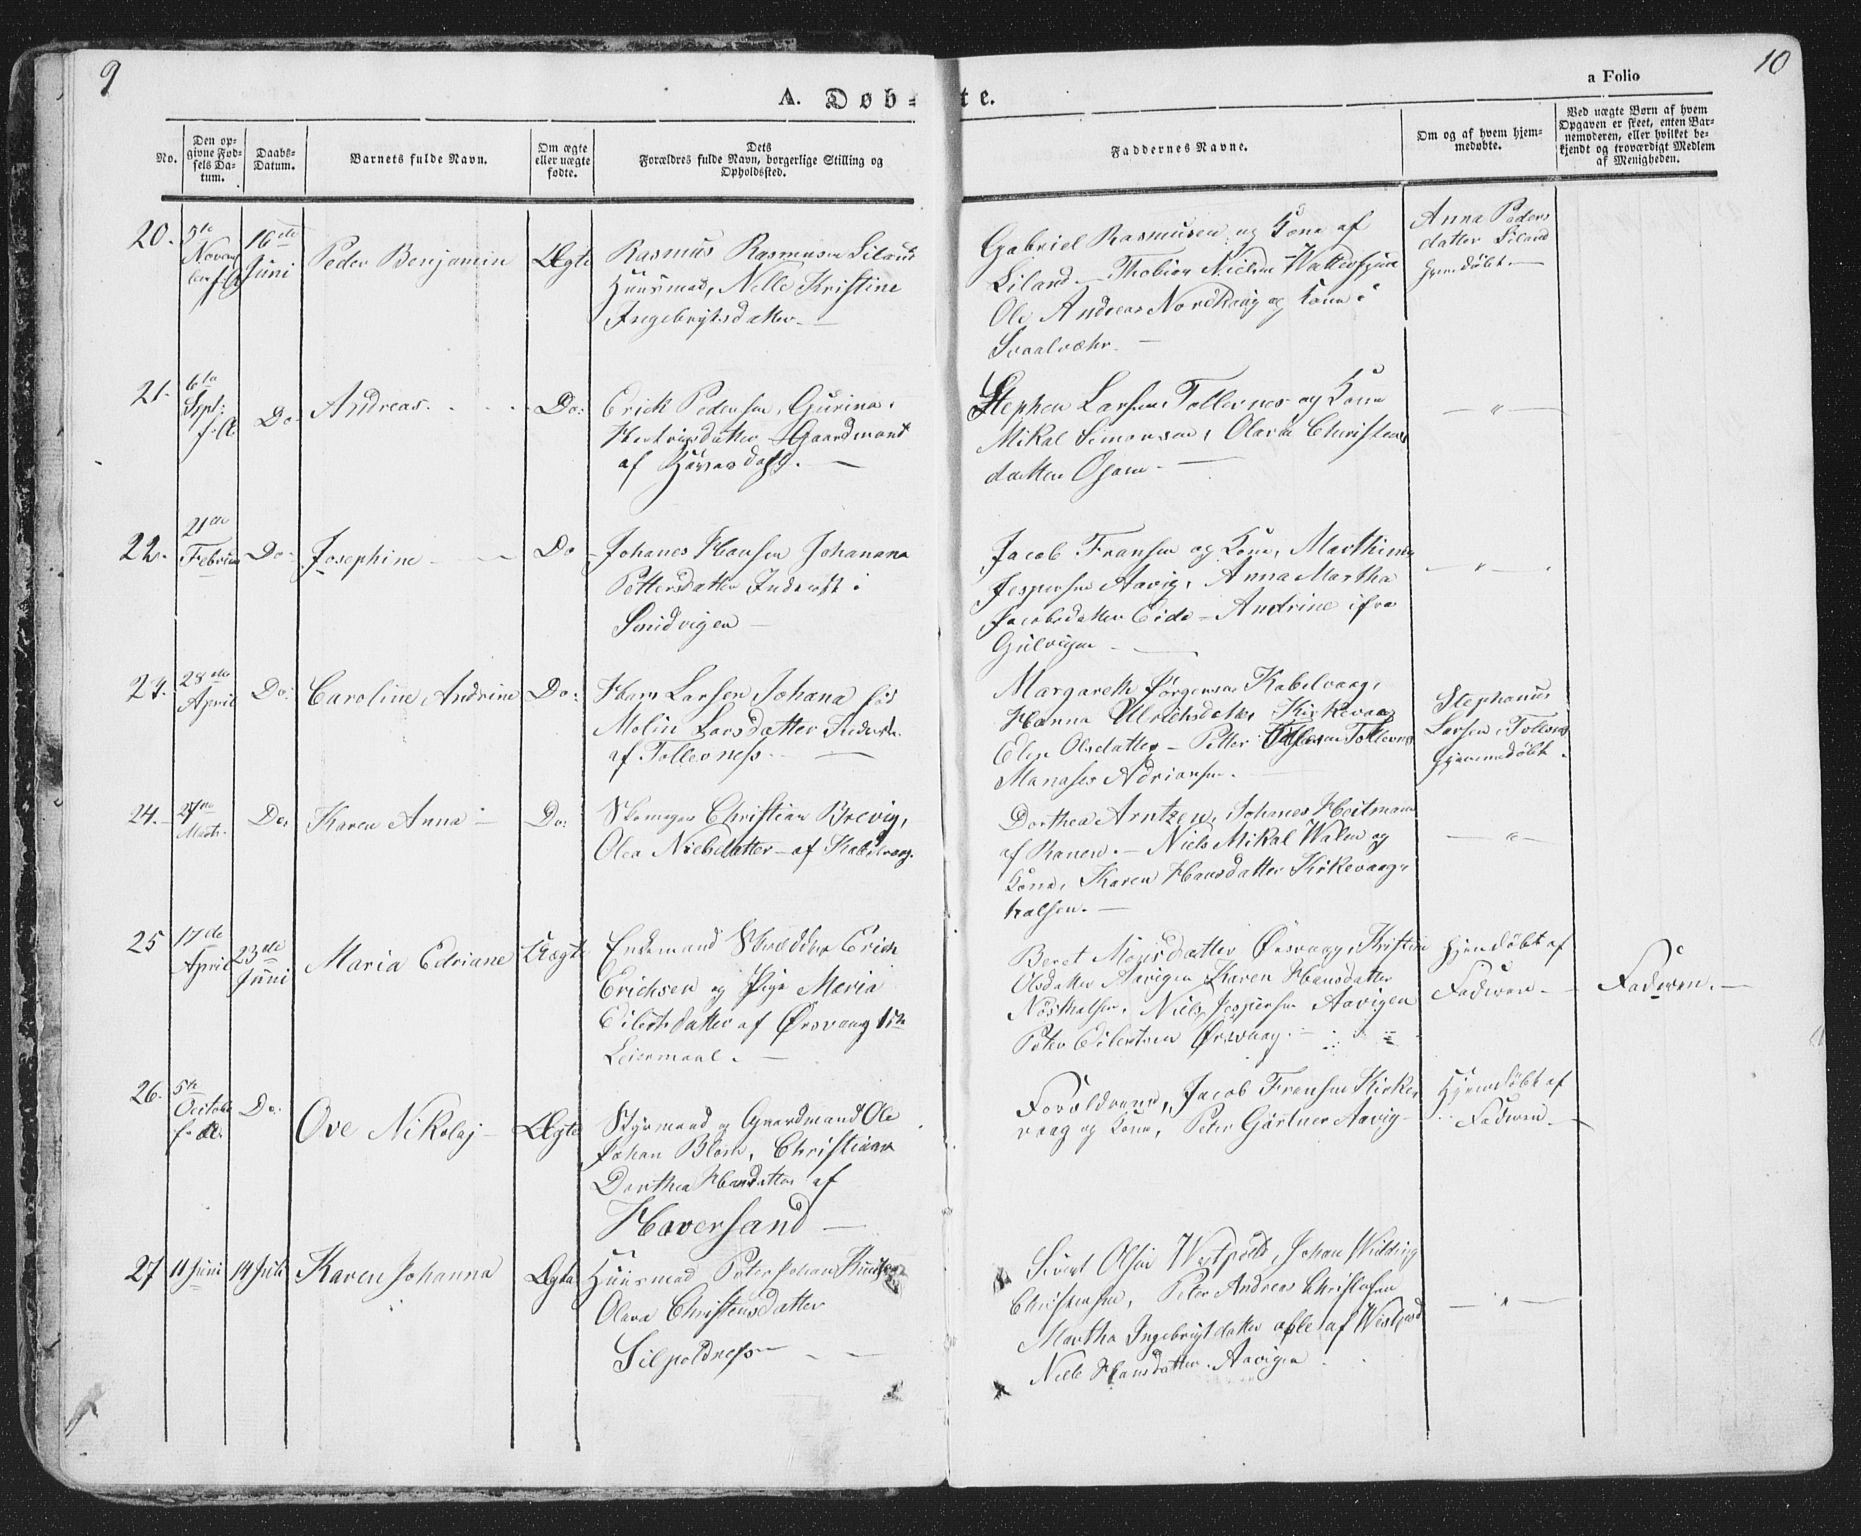 9
10
A. Døb-te.
a Folio
No.
Den op-
givne Fød-
sels Da-
tum.
Daabs-
Datum.
Barnets fulde Navn.
Om ægte
eller uægte
fødte.
Dets
Forældres fulde Navn, borgerlige Stilling og
Opholdssted.
Faddernes Navne.
Om og af hvem hjem-
medøbte.
Ved uægte Børn af hvem
Opgaven er skeet, enten Bar-
nemoderen, eller hvilket be-
kjendt og troværdigt Medlem
af Menigheden.
20.
5te
Novem
ber f. A
16de
Juni
Peder Benjamin
Ægte
Rasmus Rasmusen Liland
Huusmad, Nelle Kristine
Ingebrigtsdatter
Gabriel Rasmusen og Kone af
Liland - Thobias Nielsen
Ole Andreas Nordhaug og Kone i
Svaalvær.
Anna Peders
datter Liland
hjemdøbt.
21.
6te
Sept:
f. A
Do.
Andreas.
Do:
Erick Pedersen, Gurina
Hertvigsdatter Gaardmand
af
Stephen Larsen Tollevnes og Kone
Mikal Simonsen, Olava Christens
datter
"
22.
21de
Februar
Do.
Josephine
Do
Johanes Hansen Johanna
Pettersdatter Inderst i
Smidvigen
Jacob Fransen og Kone, Marthinus
Jespersen Aavig, Anna Martha
Jacobsdatter Eide - Andrine ifra
Gulvigen
"
23.
28de
April
Do:
Caroline Andrine
Do:
Hans Larsen Johana fød
Molin Larsdatter Inderst
af Tollevness.
Margareth Jørgensen Kabelvaag,
Hanna Ulrichsdatter Kirkevaag
Elen Olsdatter - Petter Tollevnes
Manases Adriansen.
Stephanus
Larsen Tollevnes
hjemmedøbt.
24.
27de
Marts.
Do.
Karen Anna
Do:
Skomager Christian Brevig,
Olea Nielsdatter - af Kabelvaag.
Dorthea Arntzen, Johanes Heitmann
af Ranen. - Niels Mikal Walen og
Kone, Karen Hansdatter Kirkevaag,
halsen.
"
25
17de
April
23de
Juni
Maria Edriane
Uægte
Enkemand Skrædder Erick
Ericksen og Pige Maria
Eilertsdatter af Ørsvaag 1ste
Leiermaal.
Beret Monsdatter Ørsvaag, Kristine
Olsdatter Aavigen Karen Hansdatter
Niels Jespersen Aavigen
Peter Eilertsen Ørsvaag.
Hjemdøbt af
Faderen.
Faderen.
26.
5te
Octobr
f. A.
Do.
Ove Nikolaj
Ægte
Styrmand og Gaardmand Ole
Johan Blom, Christiana
Dorthea Hansdatter af
Haversand
Forældrene, Jacob Fransen Kirke
vaag og Kone, Peter Gärtner Aavig
Hjemdøbt af
Faderen
27
11 Juni
14 Juli
Karen Johanna
Ægte
Huusmad Peter Johan Knudsen
Olava Christensdatter
Silpoldness
Sivert Olsen Johan
Christensen, Peter Andreas Christensen
Martha Ingebrigtdatter alle af
Niels Hansdatter Aavigen
"